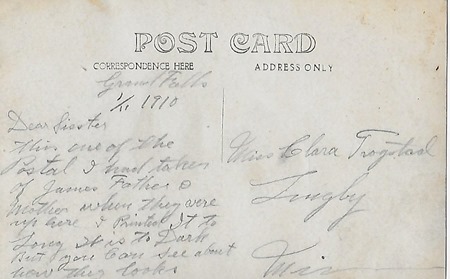 POST CARD
CORRESPONDENCE HERE
ADDRESS ONLY
Grand Falls
1/1, 1910
Dear Sisster
This one of the
Postal I had taken
of James Father &
Mother when they vere
up here I Printed it to
Long it is to Dark
But you Can See about
how they looks
Miss Clara Trogstad
Lingby
Min